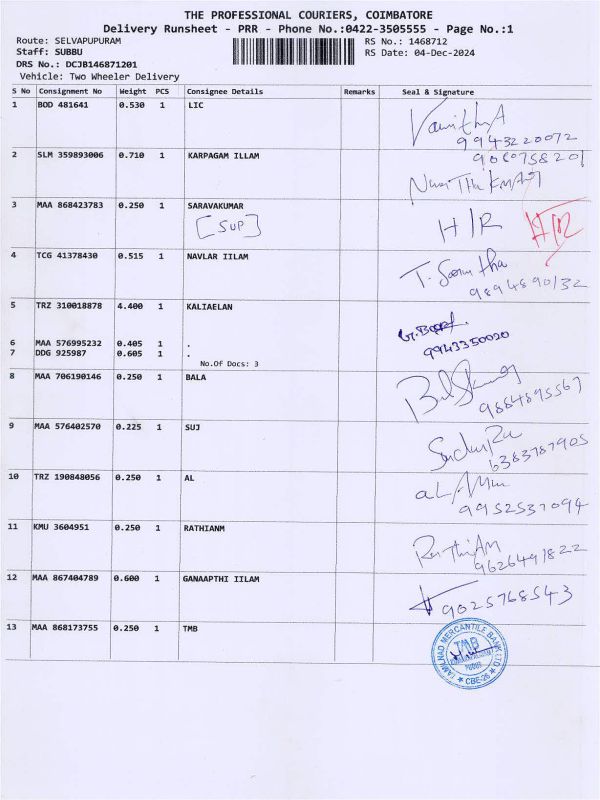 THE PROFESSIONAL COURIERS, COIMBATORE
Delivery Runsheet - PRR - Phone No.:0422-3505555 - Page No.:1
Route: SELVAPUPURAM RS No.: 1468712
Staff: SUBBU RS Date: 04-Dec-2024
DRS No.: DCJB146871201
Vehicle: Two Wheeler Delivery
S No Consignment No Weight PCS Consignee Details Remarks Seal & Signature
1 BOD 481641 0.530 1 LIC
9943220072
2 SLM 359893006 0.710 1 KARPAGAM ILLAM
3 MAA 868423783 0.250 1 SARAVAKUMAR
[SUP] H/R H/R
4 TCG 41378430 0.515 1 NAVLAR IILAM
9894890132
5 TRZ 310018878 4.400 1 KALIAELAN
6 MAA 576995232 0.405 1 . 9943350020
7 DDG 925987 0.605 1 .
No.Of Docs: 3
8 MAA 706190146 0.250 1 BALA
9884895567
9 MAA 576402570 0.225 1 SUJ
6383787905
10 TRZ 190848056 0.250 1 AL
9952537094
11 KMU 3604951 0.250 1 RATHIANM
9626491822
12 MAA 867404789 0.600 1 GANAAPTHI IILAM
9025768543
13 MAA 868173755 0.250 1 TMB
TAMILNAD MERCANTILE BANK LTD
TMB
CBE-26